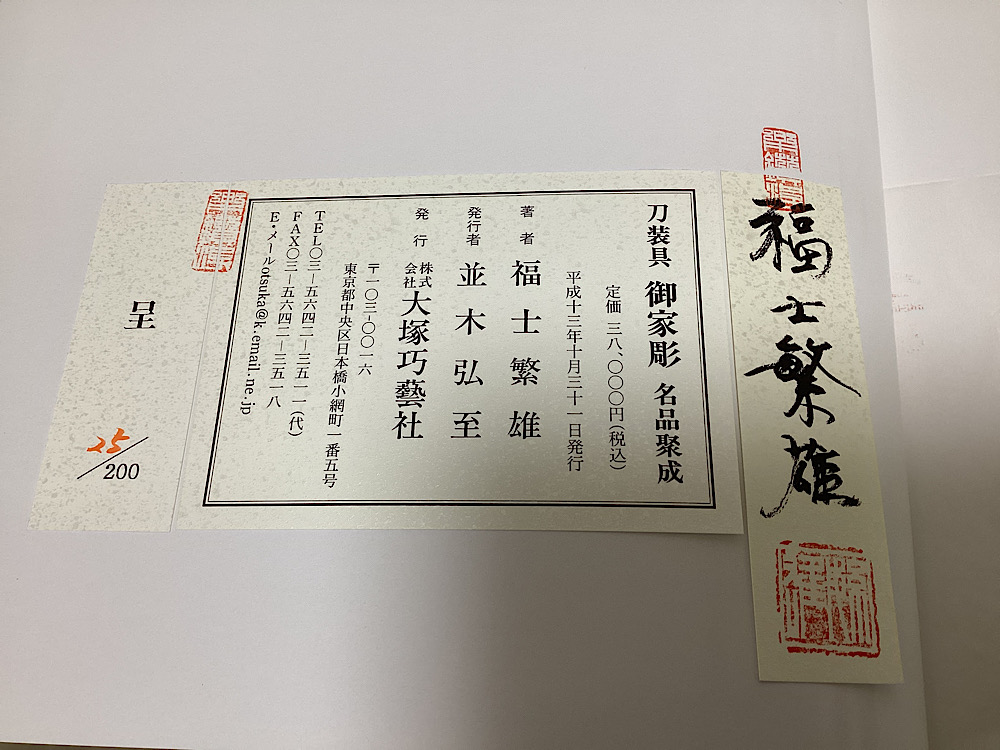 福士繁雄
刀装具 御家彫 名品聚成
定価 三八、〇〇〇円(税込)
平成十三年十月三十一日発行
著者 福士繁雄
発行者 並木弘至
発行 株式会社大塚巧藝社
〒一〇三-〇〇一六
東京都中央区日本橋小網町一番五号
TEL〇三-五六四二-三五一一(代)
FAX〇三-五六四二-三五一八
E・メールotsuka@k.email.ne.jp
呈
25/200